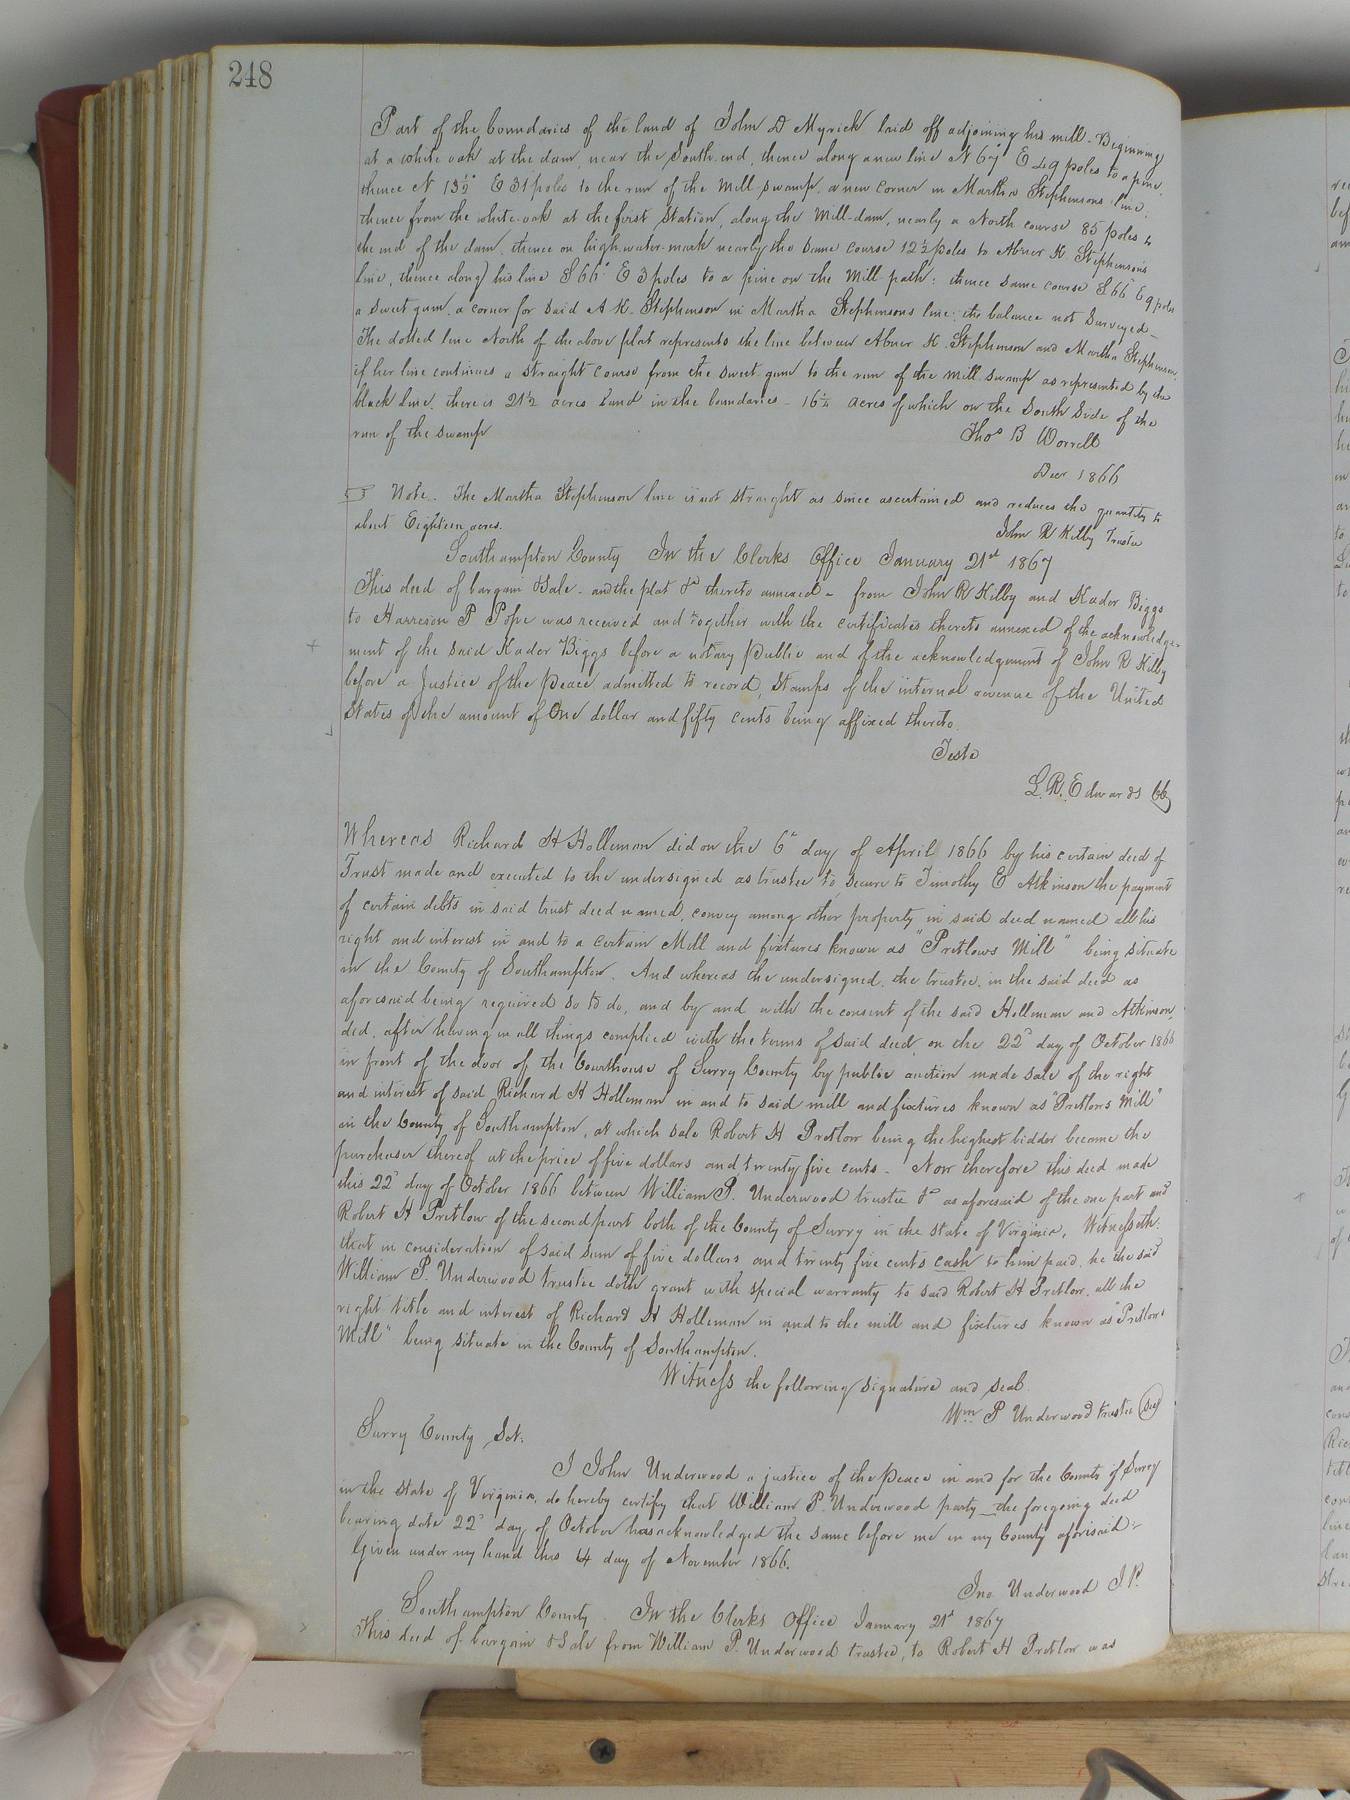 248
Part of the boundaries of the land of John D Myrick laid off adjoining his mill - Beginning
at a white oak at the dam, near the South end, thence along a new line N 67° E 49 poles to a pine,
thence N 13½° E 31 poles to the run of the Mill swamp, a new corner in Martha Stephensons line,
thence from the white-oak at the first Station, along the Mill-dam, nearly a North course 85 poles to
the end of the dam, thence on high-water-mark nearly the same course 12½ poles to Abner K. Stephenson's
line, thence along his line S 66° E 3 poles to a pine on the Mill path; thence same course S 66° E 9 poles
a sweet gum, a corner for said A K. Stephenson in Martha Stephensons line; the balance not Surveyed -
The dotted line North of the above plat represents the line between Abner K. Stephenson and Martha Stephenson.
if her line continues a straight course from the sweet-gum to the run of the mill swamp as represented by the
black line, there is 21½ acres land in the boundaries - 16¼ acres of which on the South Side of the
run of the swamp
Thos B Worrell
Decr 1866
Note. The Martha Stephenson line is not straight as since ascertained and reduces the quantity to
about Eighteen acres.
John R Kilby Trustee
Southampton County In the Clerks Office January 21st 1867
This deed of bargain & Sale - and the plat &c thereto annexed - from John R Kilby and Kader Biggs
to Harrison P Pope was received and together with the certificates thereto annexed of the acknowledge-
ment of the said Kader Biggs before a notary public and of the acknowledgement of John R Kilby
before a Justice of the Peace admitted to record, Stamps of the internal revenue of the United
States of the amount of One dollar and fifty cents being affixed thereto.
Teste
L. R. Edwards CC
Whereas Richard H Holleman did on the 6th day of April 1866 by his certain deed of
Trust made and executed to the undersigned as trustee to secure to Timothy E Atkinson the payment
of certain debts in said trust deed named, convey among other property in said deed named all his
right and interest in and to a certain Mill and fixtures known as "Pretlows Mill" being situate
in the County of Southampton. And whereas the undersigned, the trustee, in the said deed as
aforesaid being required so to do, and by and with the consent of the said Holleman and Atkinson,
did, after having in all things complied with the terms of said deed, on the 22d day of October 1866
in front of the door of the Courthouse of Surry County by public auction made sale of the right
and interest of said Richard H Holleman in and to said mill and fixtures known as "Pretlows Mill"
in the County of Southampton, at which sale Robert H Pretlow being the highest bidder became the
purchaser thereof at the price of five dollars and twenty five cents - Now therefore this deed made
this 22d day of October 1866 between William P. Underwood trustee &c as aforesaid of the one part and
Robert H Pretlow of the second part both of the County of Surry in the State of Virginia, Witnesseth:
that in consideration of said sum of five dollars and twenty five cents cash to him paid, he the said
William P. Underwood trustee doth grant with special warranty to said Robert H Pretlow, all the
right title and interest of Richard H Holleman in and to the mill and fixtures known as "Pretlows
Mill" being situate in the County of Southampton.
Witness the following signature and seal
Wm P Underwood trustee Seal
Surry County Sct.
I John Underwood a justice of the peace in and for the County of Surry
in the State of Virginia, do hereby certify that William P. Underwood party the foregoing deed
bearing date 22d day of October has acknowledged the same before me in my County aforesaid:-
Given under my hand this 14 day of November 1866.
Jno Underwood J.P.
Southampton County. In the Clerks Office January 21st 1867
This deed of bargain & Sale from William P. Underwood trustee, to Robert H Pretlow was